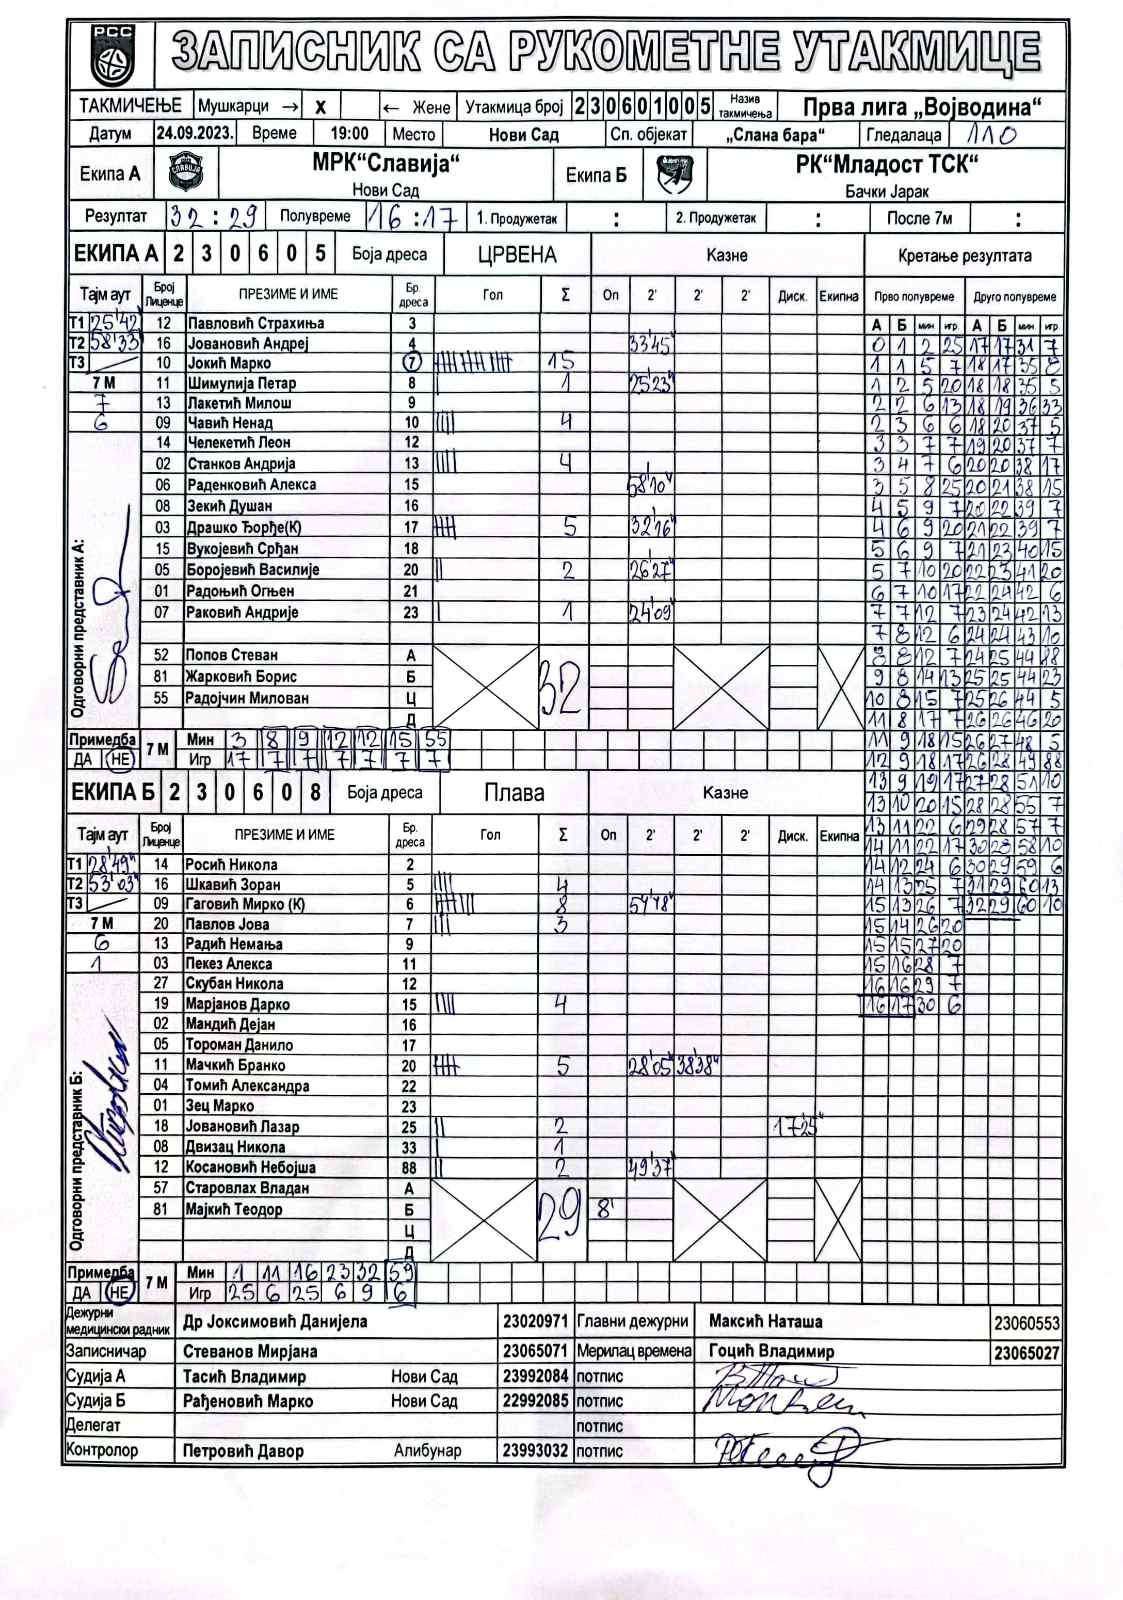 РСС
ЗАПИСНИК СА РУКОМЕТНЕ УТАКМИЦЕ
ТАКМИЧЕЊЕ Мушкарци → x ← Жене Утакмица број 230601005 Назив такмичења Прва лига „Војводина“
Датум 24.09.2023. Време 19:00 Место Нови Сад Сп. објекат „Слана бара“ Гледалаца 110
Екипа А МРК“Славија“ Нови Сад Екипа Б РК“Младост ТСК“ Бачки Јарак
Резултат 32 : 29 Полувреме 16 : 17 1. Продужетак : 2. Продужетак : После 7м :
ЕКИПА А 2 3 0 6 0 5 Боја дреса ЦРВЕНА Казне Кретање резултата
Тајм аут Број Лиценце ПРЕЗИМЕ И ИМЕ Бр. дреса Гол Σ Оп 2' 2' 2' Диск. Екипна Прво полувреме Друго полувреме
А Б мин игр А Б мин игр
Т1 25'42 12 Павловић Страхиња 3
Т2 58'33 16 Јовановић Андреј 4 33'45"
Т3 10 Јокић Марко 7 15
7 М 11 Шимулија Петар 8 1 25'23"
7 13 Лакетић Милош 9
6 09 Чавић Ненад 10 4
14 Челекетић Леон 12
02 Станков Андрија 13 4
06 Раденковић Алекса 15 58'10"
08 Зекић Душан 16
03 Драшко Ђорђе(К) 17 5 32'16"
15 Вукојевић Срђан 18
05 Боројевић Василије 20 2 26'27"
01 Радоњић Огњен 21
07 Раковић Андрије 23 1 24'09"
Одговорни представник А:
52 Попов Стеван А 32
81 Жарковић Борис Б
55 Радојчин Милован Ц
Д
Примедба ДА НЕ 7 М Мин 3 8 9 12 12 15 55
Игр 17 7 7 7 7 7 7
ЕКИПА Б 2 3 0 6 0 8 Боја дреса Плава Казне
Тајм аут Број Лиценце ПРЕЗИМЕ И ИМЕ Бр. дреса Гол Σ Оп 2' 2' 2' Диск. Екипна
Т1 28'49" 14 Росић Никола 2
Т2 53'03" 16 Шкавић Зоран 5 4
Т3 09 Гаговић Мирко (К) 6 8 54'48"
7 М 20 Павлов Јова 7 3
6 13 Радић Немања 9
1 03 Пекез Алекса 11
27 Скубан Никола 12
19 Марјанов Дарко 15 4
02 Мандић Дејан 16
05 Тороман Данило 17
11 Мачкић Бранко 20 5 28'05" 38'38"
04 Томић Александра 22
01 Зец Марко 23
18 Јовановић Лазар 25 2 17'25"
08 Двизац Никола 33 1
12 Косановић Небојша 88 2 49'37"
Одговорни представник Б:
57 Старовлах Владан А 29
81 Мајкић Теодор Б 8'
Ц
Д
Примедба ДА НЕ 7 М Мин 1 11 16 23 32 59
Игр 25 6 25 6 9 6
0 1 2 25 17 17 31 7
1 1 5 7 18 17 35 8
1 2 5 20 18 18 35 5
2 2 6 13 18 19 36 33
2 3 6 6 18 20 37 5
3 3 7 7 19 20 37 7
3 4 7 6 20 20 38 17
3 5 8 25 20 21 38 15
4 5 9 7 20 22 39 7
4 6 9 20 21 22 39 7
5 6 9 7 21 23 40 15
5 7 10 20 22 23 41 20
6 7 10 17 22 24 42 6
7 7 12 7 23 24 42 13
7 8 12 6 24 24 43 10
8 8 12 7 24 25 44 88
9 8 14 13 25 25 44 23
10 8 15 7 25 26 44 5
11 8 17 7 26 26 46 20
11 9 18 15 26 27 48 5
12 9 18 17 26 28 49 88
13 9 19 17 27 28 51 10
13 10 20 15 28 28 55 7
13 11 22 6 29 28 57 7
14 11 22 17 30 28 58 10
14 12 24 6 30 29 59 6
14 13 25 7 31 29 60 13
15 13 26 7 32 29 60 10
15 14 26 20
15 15 27 20
15 16 28 7
16 16 29 7
16 17 30 6
Дежурни медицински радник Др Јоксимовић Данијела 23020971 Главни дежурни Максић Наташа 23060553
Записничар Стеванов Мирјана 23065071 Мерилац времена Гоцић Владимир 23065027
Судија А Тасић Владимир Нови Сад 23992084 потпис
Судија Б Рађеновић Марко Нови Сад 22992085 потпис
Делегат потпис
Контролор Петровић Давор Алибунар 23993032 потпис